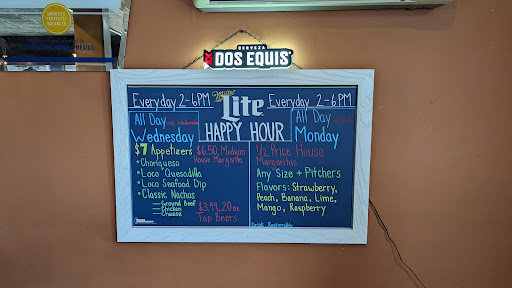 CERVEZA
DOS EQUIS
Everyday 2-6PM
Miller
Lite
Everyday 2-6PM
HAPPY HOUR
All Day
Wednesday
$7 Appetizers
• Choriqueso
• Loco Quesadilla
• Loco Seafood Dip
• Classic Nachos
— Ground Beef
— Chicken
— Cheese
$6.50 Medium
House Margarita
$3.99 20oz
Tap Beers
All Day
Monday
1/2 Price House
Margaritas
Any Size + Pitchers
Flavors: Strawberry,
Peach, Banana, Lime,
Mango, Raspberry
Drink Responsibly